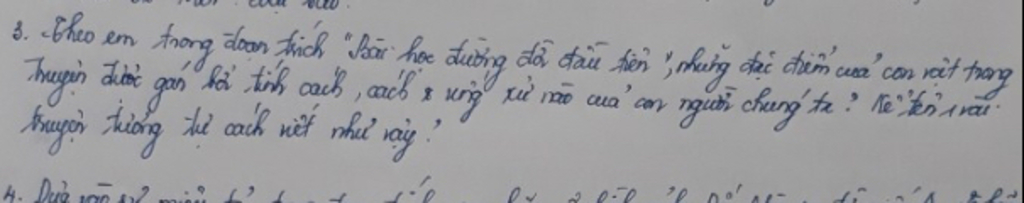 3. Theo em trong đoạn trích "Bài học đường đời đầu tiên", những đặc điểm của con vật trong
truyện được gán bởi tính cách, cách ứng xử nào của con người chúng ta? Kể tên 1 vài
truyện tương tự cách viết như vậy?
4. Dựa vào sự miêu tả